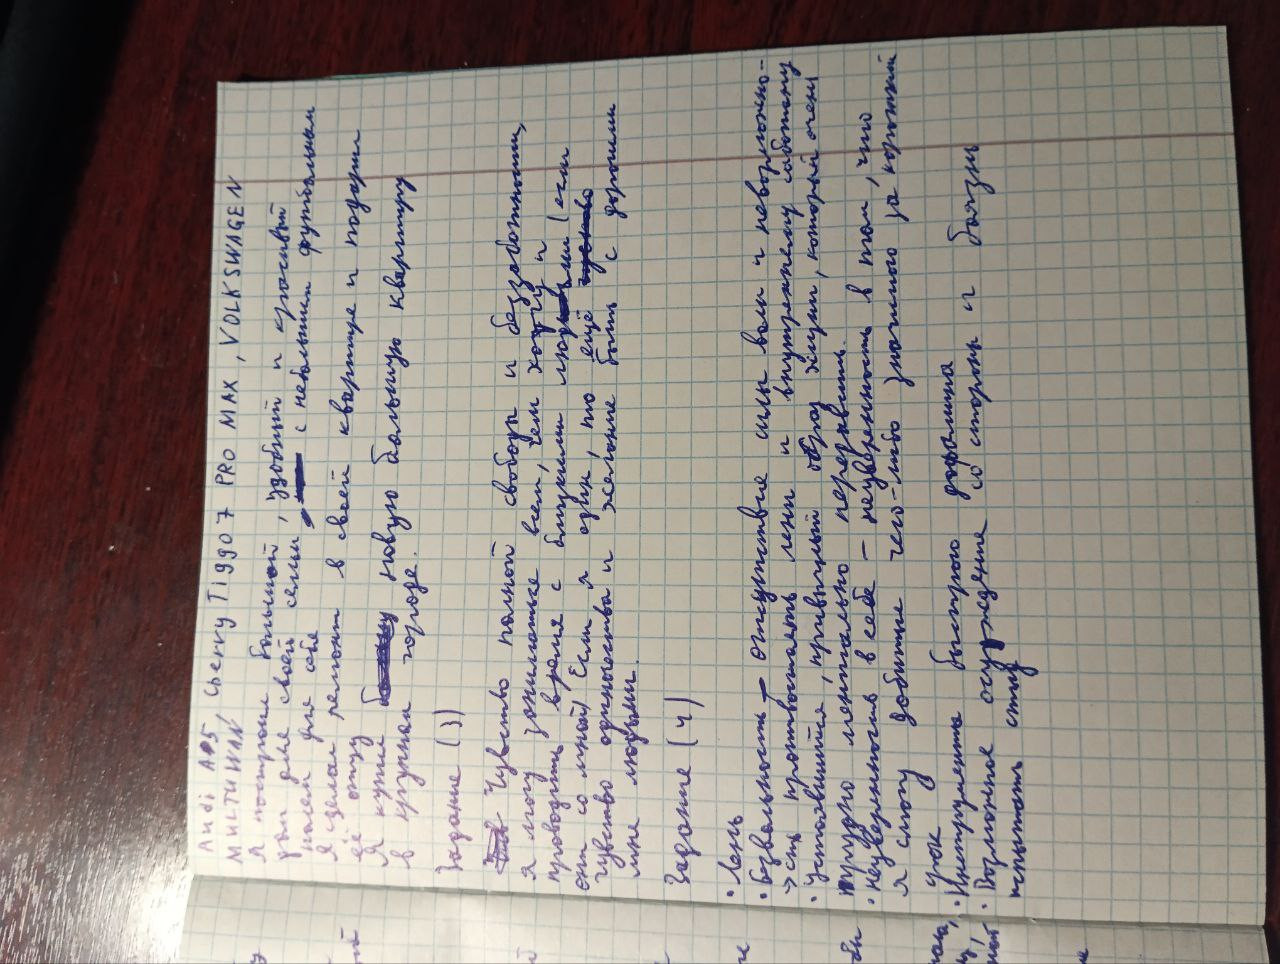 Audi A5, Cherry Tiggo 7 PRO MAX, VOLKSWAGEN
Я построил большой, удобный и красивый
дом для своей семьи, с небольшим футбольным
полем для себя
Я сделал ремонт в своей квартире и подарил
её отцу
Я купил новую большую квартиру
в крупном городе.
Задание (3)
Чувство полной свободы и беззаботности,
я могу заниматься всем, чем хочу и
проводить время с близкими людьми (если
они со мной) Если я один, то ещё
чувство одиночества и желание быть с дорогими
мне людьми.
Задание (4)
• Лень
• Безвольность – отсутствие силы воли и невозможно-
сть противостоять лени и внутреннему саботажу
• Устоявшийся, привычный образ жизни, который очень
трудно ментально перервать.
• неуверенность в себе – неуверенность в том, что
я смогу добиться чего-либо значимого за короткий
срок
• Инструменты быстрого дофамина
• Возможное осуждение со стороны и боязнь
испытать стыд